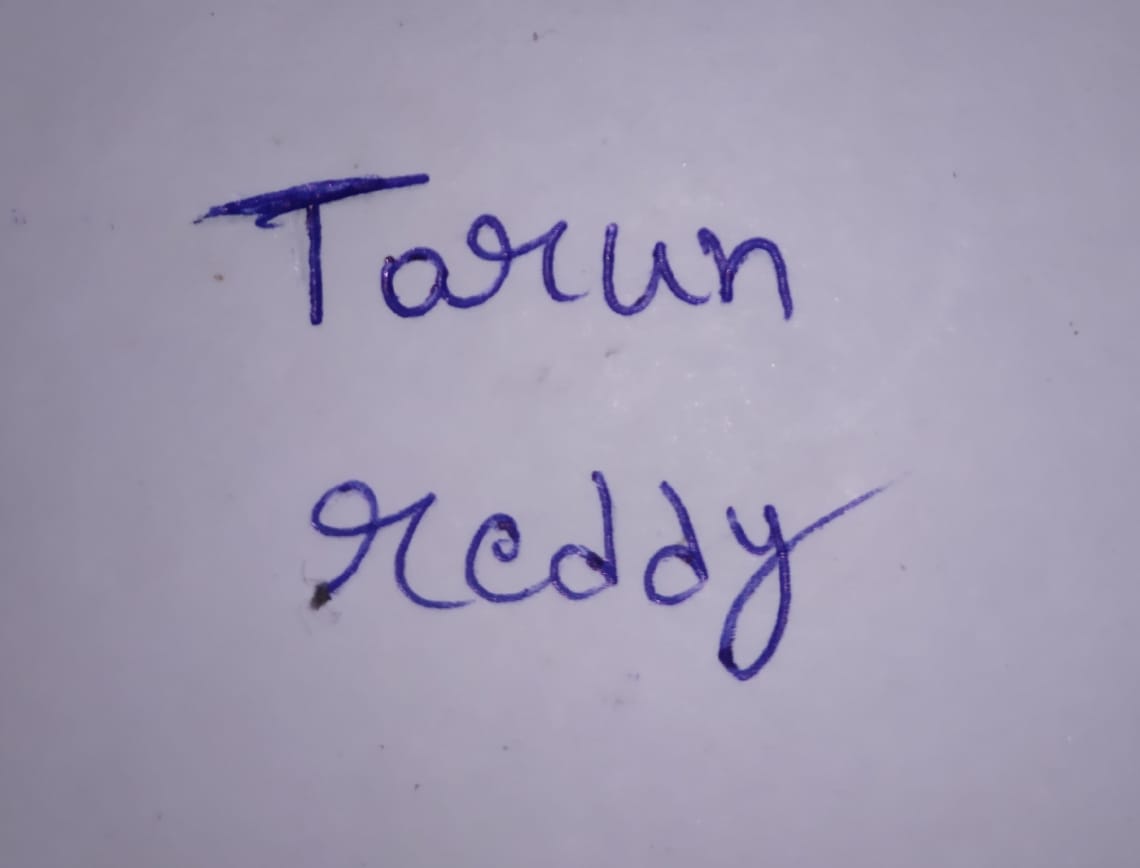 Tarun
reddy